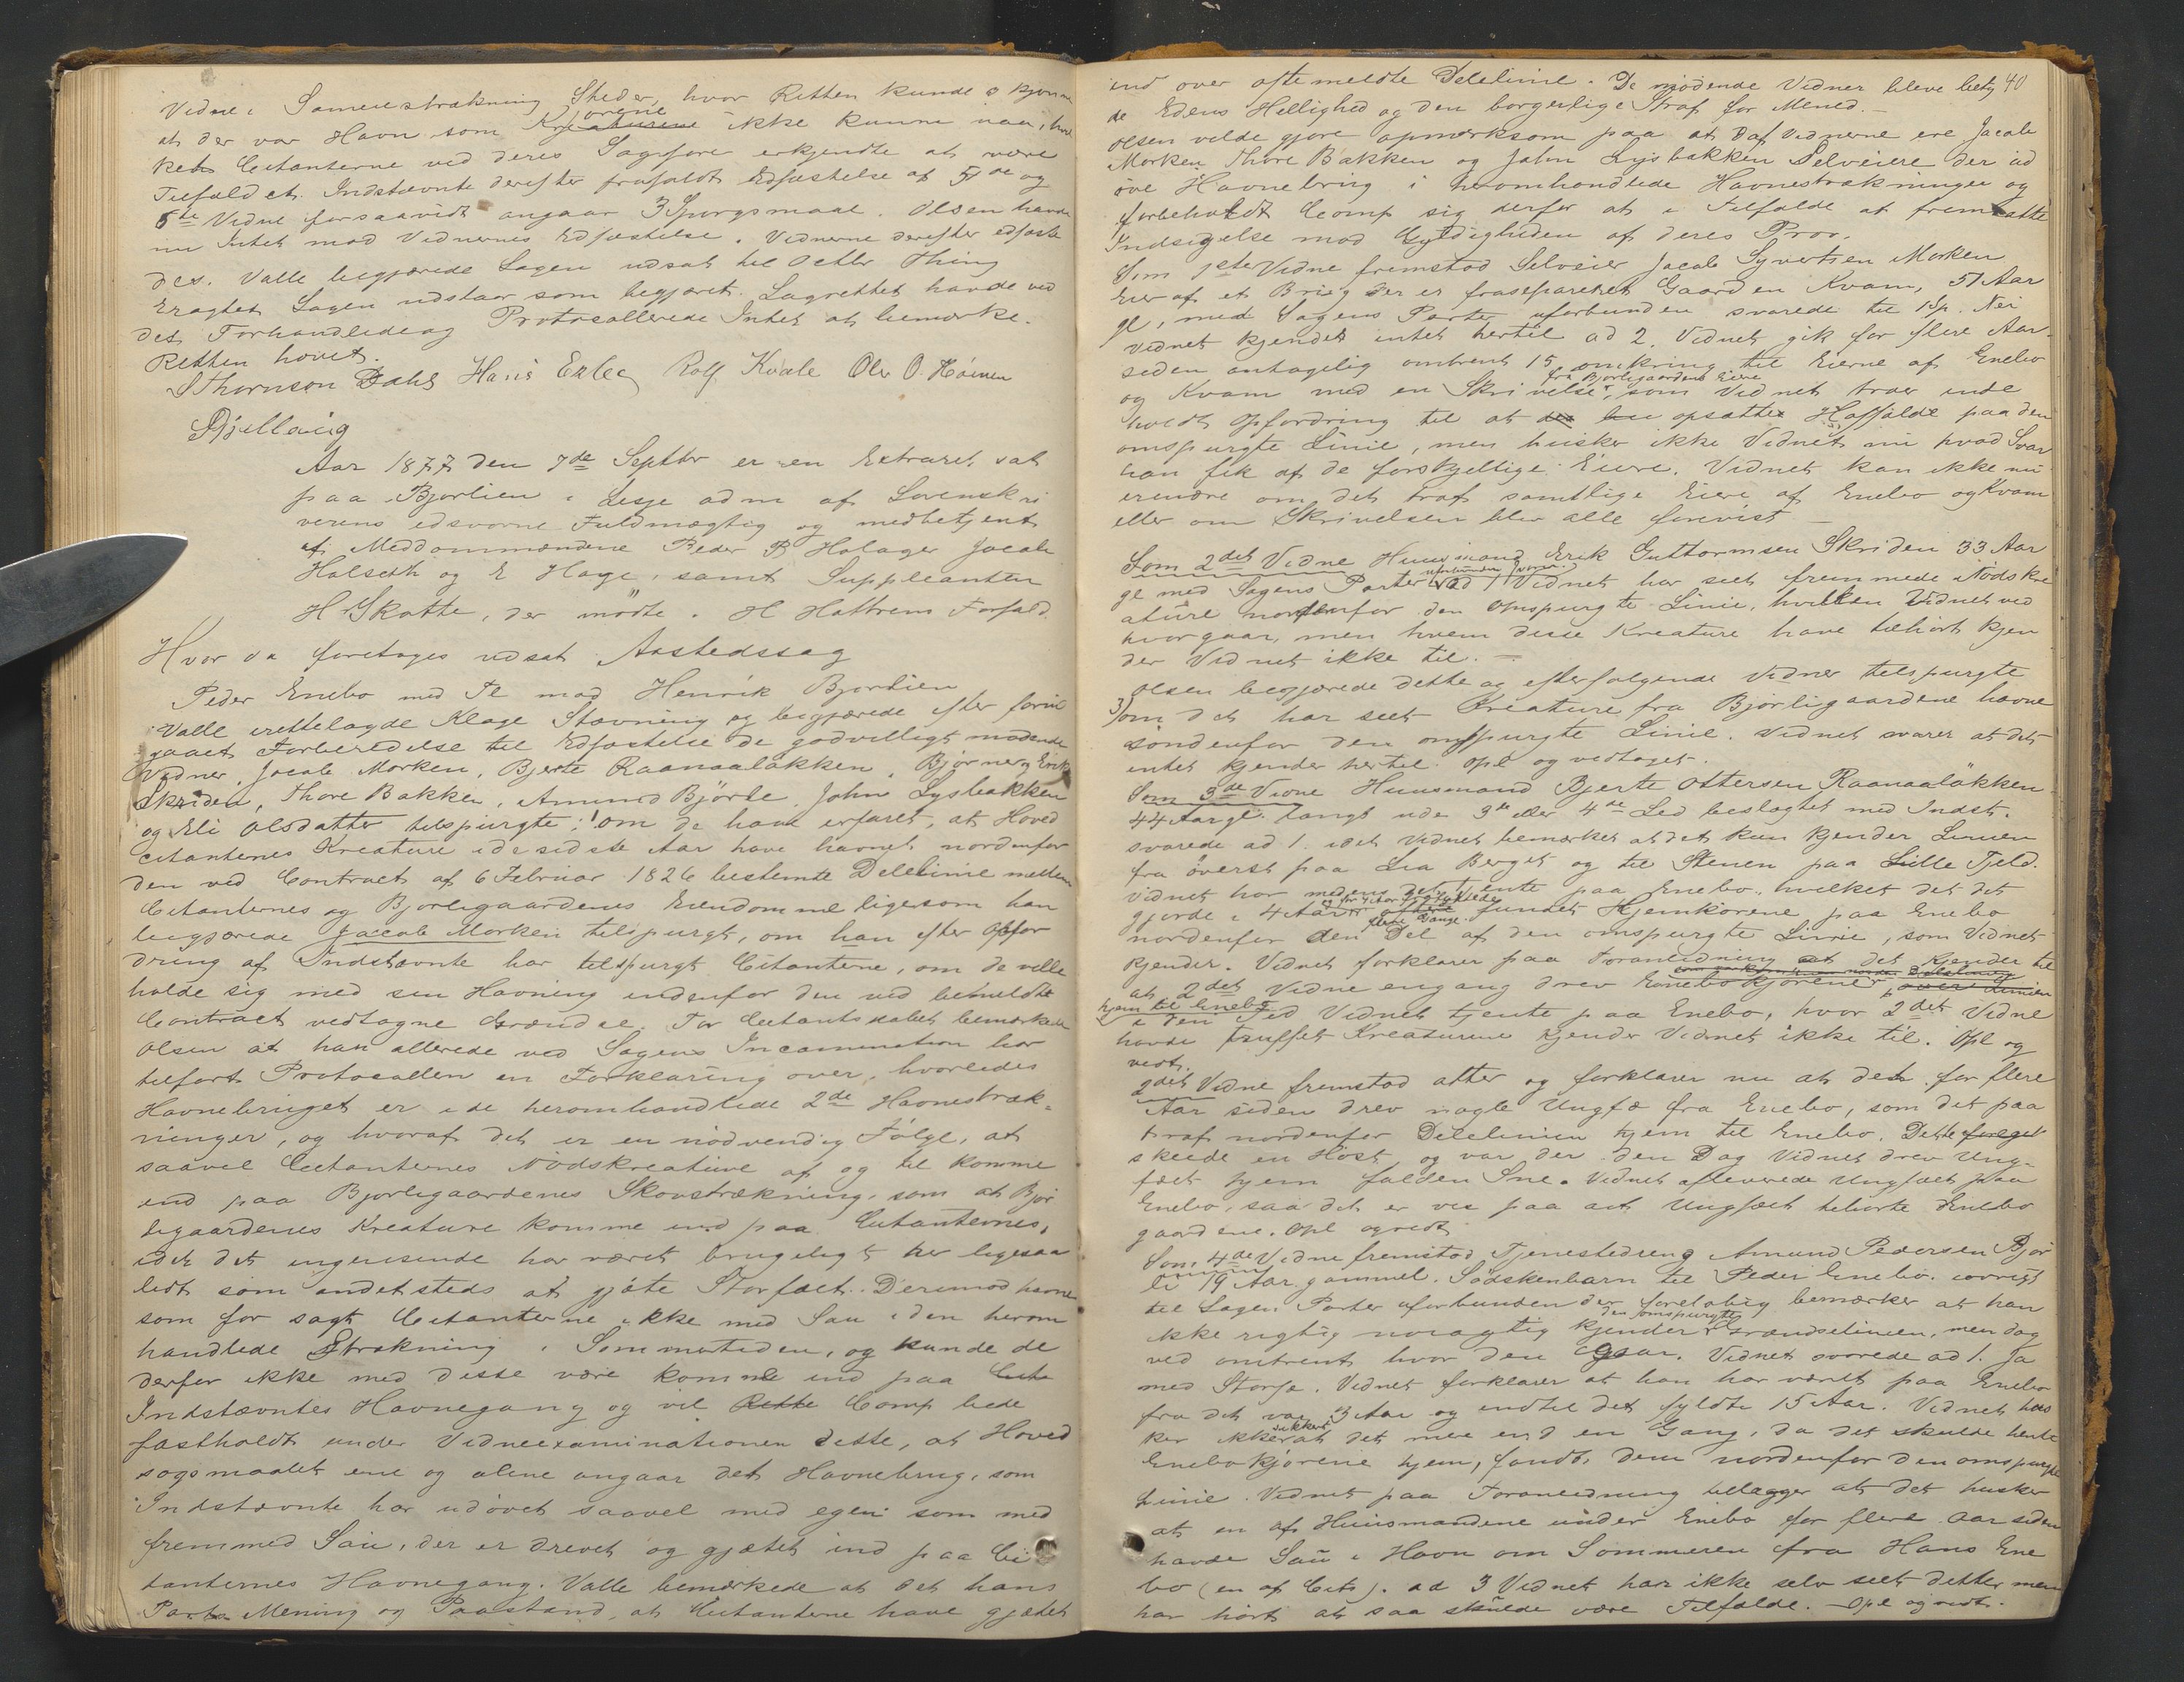 Vidne i Sameiestrækning Steder, hvor Retten kunde skjønne
at der var Havn som Kreaturene kjørene ikke kunne naa, hvil
ket Citanterne ved deres Sagfører erkjendte at være
Tilfældet. Indstævnte derefter frafaldt Edfæstelse af 5te og
6te Vidne forsaavidt angaar 3 Spørgsmaal. Olsen havde
nu Intet mod Vidnernes Edfæstelse. Vidnerne derefter edfæste
des. Valle begjærede Sagen udsat til Octbr Thing
Eragtet Sagen udstaar som begjæret. Lagrettet havde ved
det Forhandlede og Protocollerede Intet at bemærke.
Retten hævet.
SThornson Dahl Hans Exlee Rolf Kvale Ole O. Höinen
Bjelland
Aar 1877 den 7de Septbr er en Extraret sat
paa Bjorlien i Lesje adm af Sorenskri
verens edsvorne Fuldmægtig og medbetjent
af Meddommændene Peder P Holager Jacob
Holseth og E Hage, samt Suppleanten
H Skotte, der mödte. H Hattrem Forfald.
Hvor da foretages udsat Aastedssag
Peder Enebo med Fl mod Henrik Bjorlien
Valle irettelagde Klage Stævning og begjærede efter forud
gaaet Forberedelse til Edfæstelse de godvilligt mødende
Vidner, Jacob Morken, Bjerte Raanaaløkken, Bjørner og Erik
Skriden, Thore Bakken, Amund Björle, John Lysbakken
og Eli Olsdatter tilspurgte: 1 om de have erfaret, at Hoved
citanternes Kreature i de sidste Aar have havnet nordenfor
den ved Contract af 6 Februar 1826 bestemte Delelinie mellem
Citanternes og Bjorligaardenes Eiendomme ligesom han
begjærede Jacob Morken tilspurgt, om han efter Opfor
dring af Indstævnte har tilspurgt Citanterne, om de ville
holde sig med sin Havning indenfor den ved bemeldte
Contract vedtagne Grændse. For Citantskabet bemærkede
Olsen at han allerede ved Sagens Incammination har
tilført Protocollen en Forklaring over, hvorledes
Havnebruget er i de heromhandlede 2de Havnestræk-
ninger, og hvoraf det er en nödvendig Fölge, at
saavel Citanternes Nödskreature af og til komme
ind paa Bjorligaardenes Skovstrækning, som at Bjor
ligaardenes Kreature komme ind paa Citanternes,
idet det ingensinde har været brugeligt her ligesaa
lidt som andetsteds at gjæte Storfæet. Derimod havne
som før sagt Citanterne ikke med Sau i den herom
handlede Strækning i Sommertiden, og kunde de
derfor ikke med disse være komme ind paa Cita
Indstævntes Havnegang og vil Rette Comp bede
fastholdt under Vidneexaminationen dette, at Hoved
sögsmaalet ene og alene angaar det Havnebrug, som
Indstævnte har udövet saavel med egen som med
fremmed Sau, der er drevet og gjætet ind paa Ci
tanternes Havnegang. Valle bemærkede at det hans
Parts Mening og Paastand, at Citanterne have gjætet
40
ind over oftemeldte Delelinie. De mødende Vidner bleve betyd
de Edens Hellighed og den borgerlige Straf for Mened.
Olsen vilde gjøre opmærksom paa at 3 af Vidnerne ere Jacob
Morken Thore Bakken og John Lysbakken Selveiere der ud
öve Havnebrug i heromhandlede Havnestrækninger og
forbeholdt Comp sig derfor at i Tilfælde at fremsætte
Indsigelse mod Gyldigheden af deres Prov.
Som 1ste Vidne fremstod Selveier Jacob Syvertsen Morken
Eier af et Brug der er fraseparet Gaarden Kvam, 51 Aar
gl, med Sagens Parter uforbunden svarede til 1 Sp. Nei
Vidnet kjender intet hertil ad 2. Vidnet gik for flere Aar
siden antagelig omtrent 15 omkring til Eierne af Enebo
og Kvam med en Skrivelse fra Bjorligaardens Eiere, som Vidnet tror inde
holdt Opfordring til at opsætte Hafælde paa den
omspurgte Linie, men husker ikke Vidnet nu hvad Svar
han fik af de forskjellige Eiere. Vidnet kan ikke nu
erindre om det traf samtlige Eiere af Enebo og Kvam
eller om Skrivelsen blev alle forevist
Som 2det Vidne Huusmand Erik Guttormsen Skriden 33 Aar
gl med Sagens Parter uforbunden svarer ad 1 Vidnet har seet fremmede Nödskre
ature nordenfor den omspurgte Linie, hvilken Vidnet ved
hvor gaar, men hvem disse Kreature have tilhört kjen
der Vidnet ikke til. –
Olsen begjærede dette og efterfølgende Vidner tilspurgte
3) om det har seet Kreature fra Bjorligaardene havne
söndenfor den omspurgte Linie. Vidnet svarer at det
intet kjender hertil. Opl og vedtaget.
Som 3de Vidne Huusmand Bjerte Ottersen Raanaaløkken
44 Aar gl. langt ude 3de eller 4de Led beslægtet med Indst.
svarede ad 1. idet Vidnet bemærker at det kun kjender Linien
fra överst paa Lia Berget og til Stenen paa Lille Fjeld.
Vidnet har medens det tjente paa Enebo, hvilket det
gjorde i 4 Aar flere Gange fundet Hjemkörene paa Enebo
nordenfor den Del af den omspurgte Linie, som Vidnet
kjender. Vidnet forklarer paa Foranledning at det kjender til
at 2det Vidne engang drev Enebokjørene over Linien
hjem til Enebo
i den Tid Vidnet tjente paa Enebo, hvor 2det Vidne
havde truffet Kreaturene kjender Vidnet ikke til. Opl og
vedt.
2det Vidne fremstod atter og forklarer nu at det for flere
Aar siden drev nogle Ungfæ fra Enebo, som det paa
traf nordenfor Delelinien hjem til Enebo. Dette
skeede en Höst og var der den Dag Vidnet drev Ung-
fæet hjem falden Sne. Vidnet afleverede Ungfæet paa
Enebo, saa det er vis paa at Ungfæet tilhørte Enebo
gaardene. Opl og vedt.
Som 4de Vidne fremstod Tjenestedreng Amund Pedersen Bjor
li 19 Aar gammel. Södskenbarn til Peder Enebo. iøvrigt
til Sagens Parter uforbunden der foreløbig bemærker at han
ikke rigtig nøiagtig kjender den omspurgte Grændselinien, men dog
ved omtrent hvor den gaar. Vidnet svarede ad 1. Ja
med Storfæ. Vidnet forklarer at han har været paa Enebo
fra det var 3 Aar og indtil det fyldte 15 Aar. Vidnet hus
ker ikke sikkert at det mere end en Gang, da det skulde hente
Enebokjørene hjem, fandt dem nordenfor den omspurgte
Linie. Vidnet paa Foranledning tillægger at det husker
at en af Huusmændene under Enebo for flere Aar siden
havde Sau i Havn om Sommeren fra Hans Ene
bo (en af Cits). ad 3 Vidnet har ikke selv seet dette, men
har hørt at saa skulde være Tilfælde. – Opl og vedt.